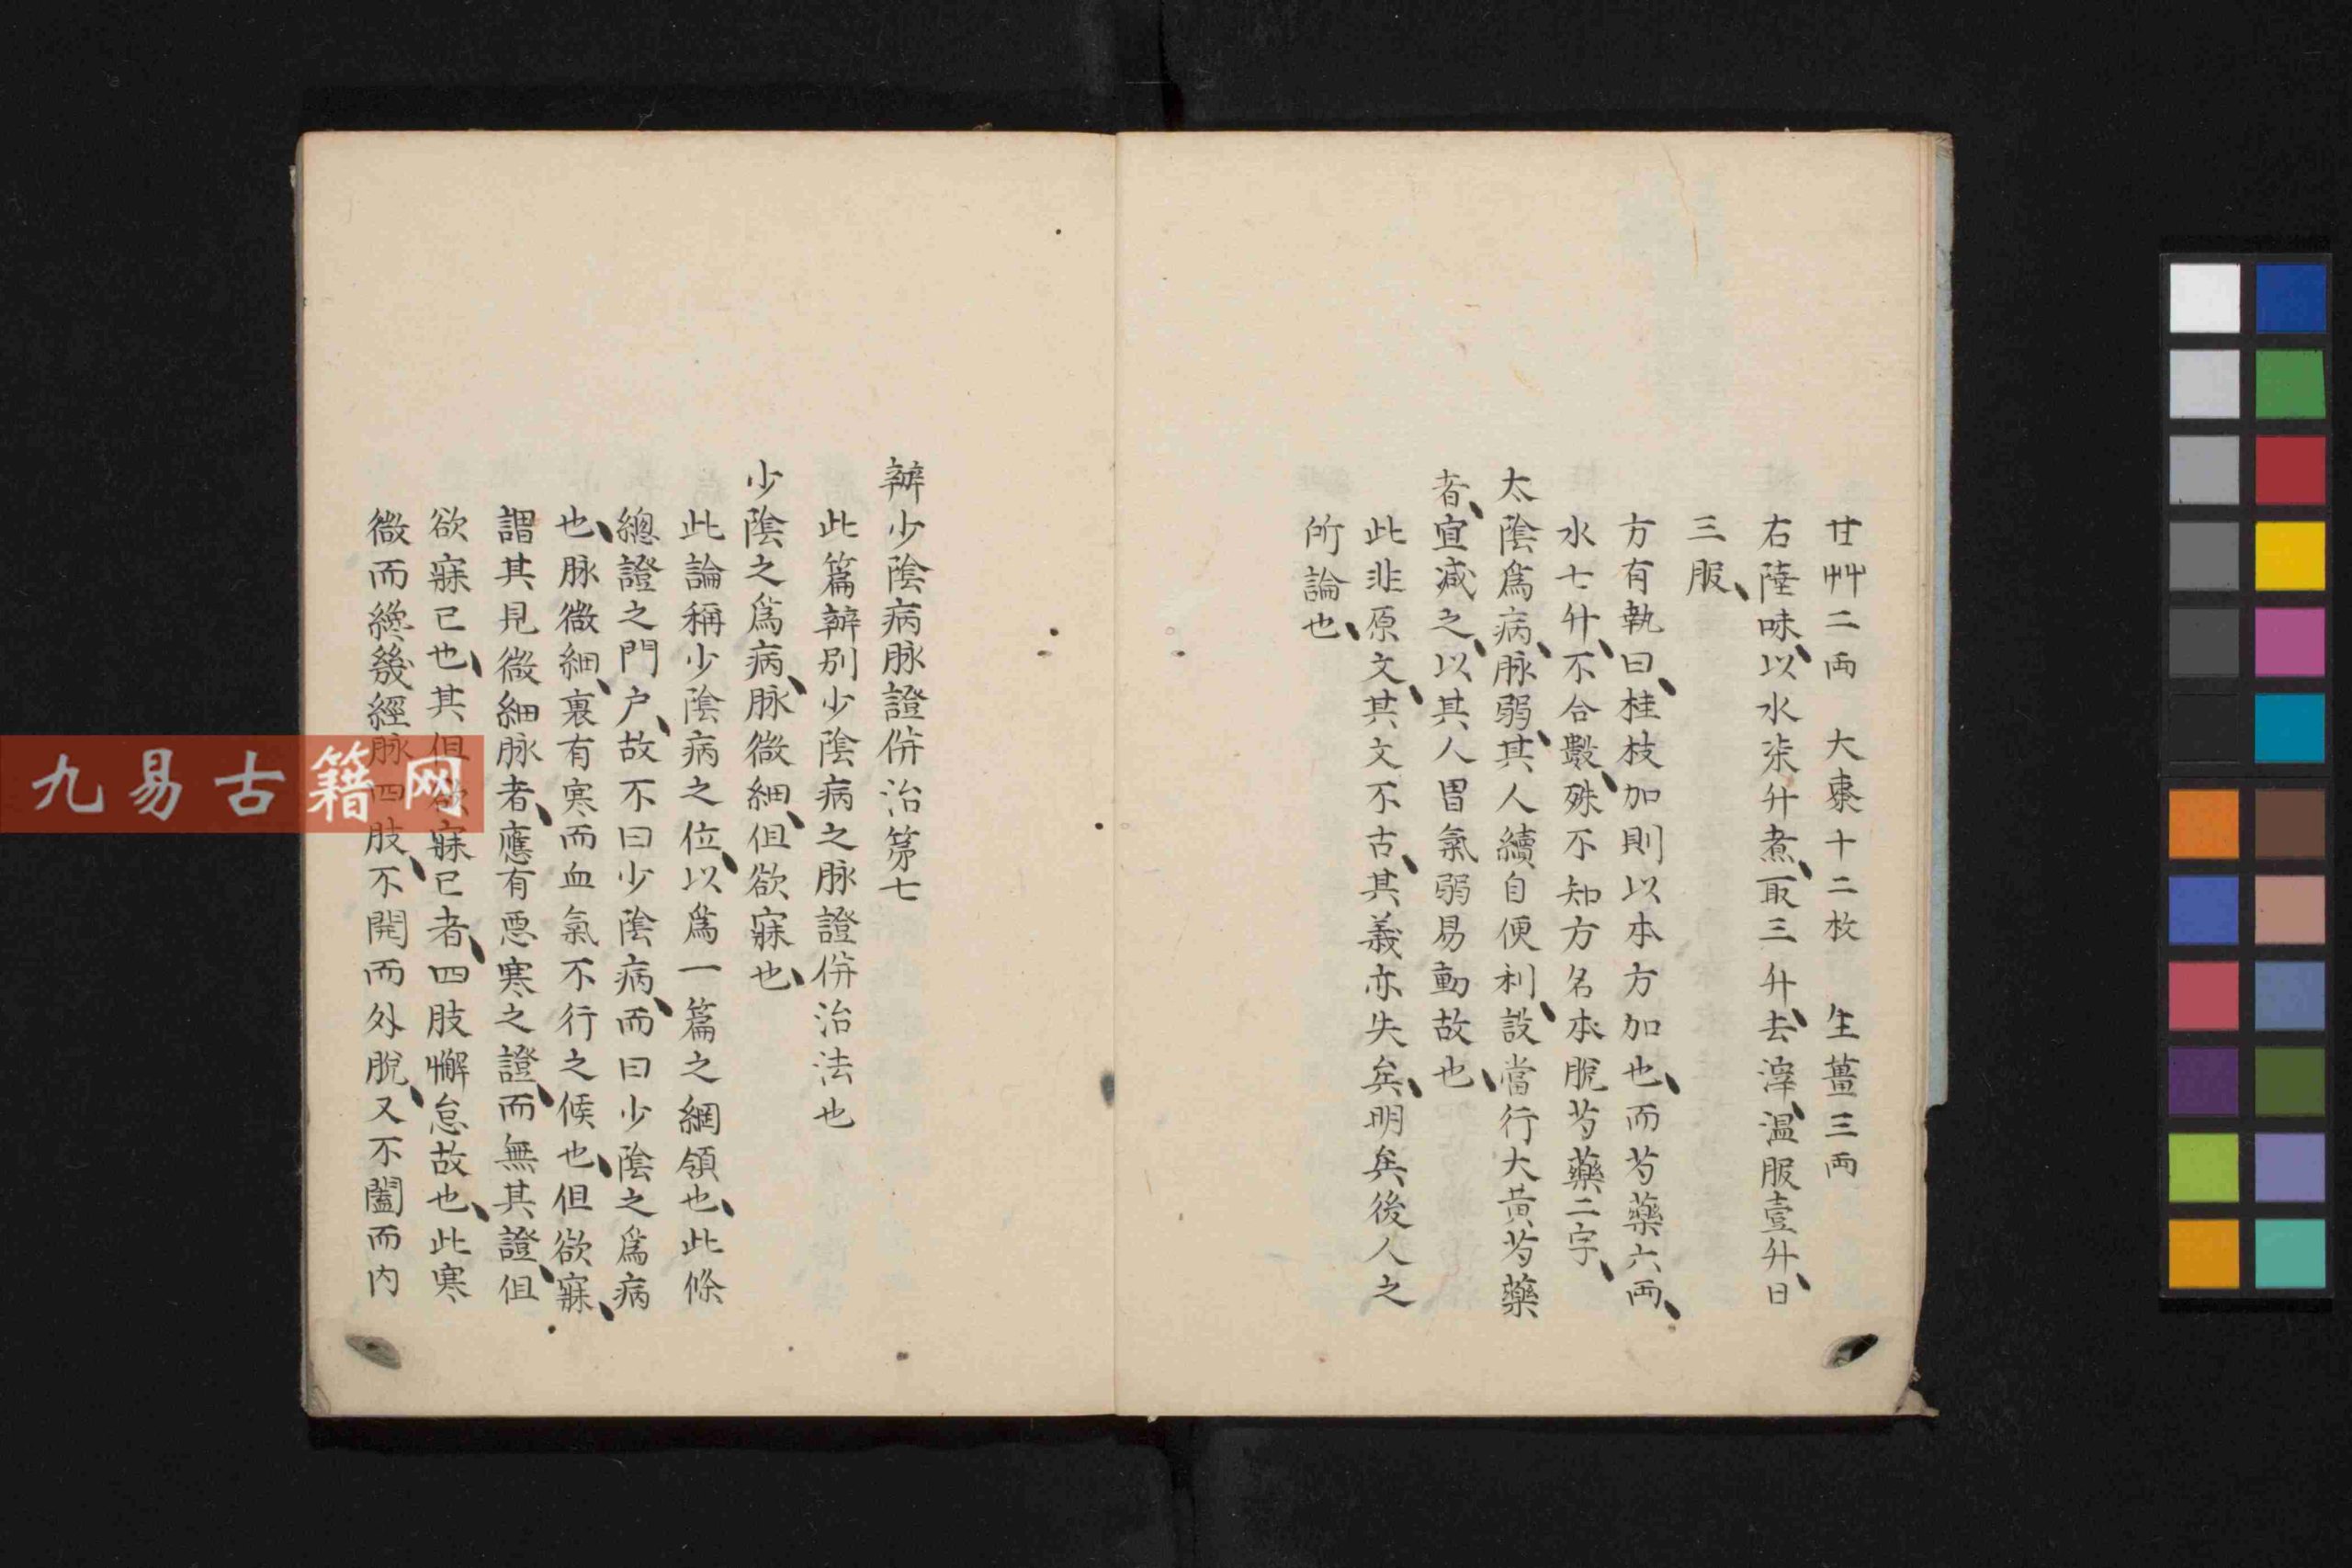 廿艸二兩　大棗十二枚　生薑三兩
右陸味、以水柒升煮、取三升、去滓、温服壹升、日
三服、
方有執曰、桂枝加則以本方加也、而芍藥六兩、
水七升、不合數、殊不知方名本脫芍藥二字、
太陰爲病、脉弱、其人續自便利、設當行大黃芍藥
者、宜減之、以其人胃氣弱易動故也、
此非原文、其文不古、其義亦失矣、明矣後人之
所論也、
辨少陰病脉證併治第七
此篇辨別少陰病之脉證併治法也
少陰之爲病、脉微細、但欲寐也、
此論稱少陰病之位、以爲一篇之網領也、此條
總證之門户、故不曰少陰病、而曰少陰之爲病
也、脉微細、裏有寒而血氣不行之候也、但欲寐、
謂其見微細脉者、應有惡寒之證、而無其證、但
欲寐已也、其但欲寐已者、四肢懈怠故也、此寒
微而纔幾經脉四肢、不開而外脫、又不闔而内
九易古籍网